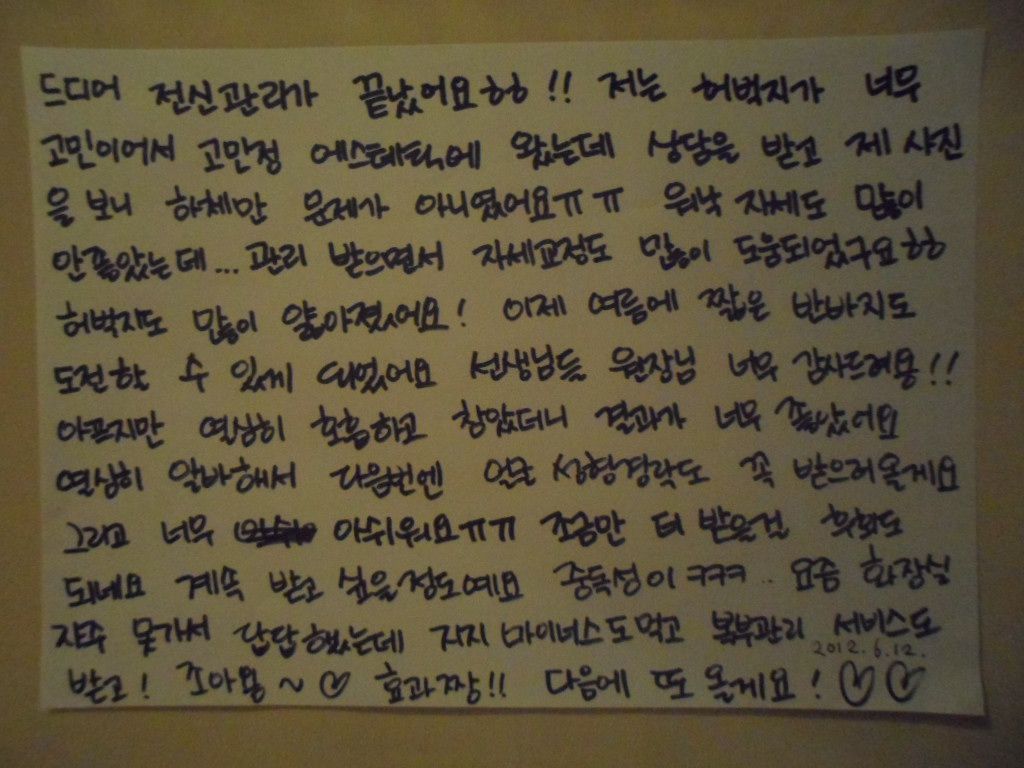 드디어 전신관리가 끝났어요ㅎㅎ!! 저는 허벅지가 너무
고민이어서 고만정 에스테틱에 왔는데 상담을 받고 제 사진
을 보니 하체만 문제가 아니였어요ㅠㅠ 워낙 자세도 많이
안좋았는데... 관리 받으면서 자세교정도 많이 도움되었구요ㅎㅎ
허벅지도 많이 얇아졌어요! 이제 여름에 짧은 반바지도
도전할 수 있게 되었어요 선생님들 원장님 너무 감사드려용!!
아프지만 열심히 호흡하고 참았더니 결과가 너무 좋았어요
열심히 알바해서 다음번엔 얼굴 성형경락도 꼭 받으러올게요
그리고 너무 아쉬워요ㅠㅠ 조금만 더 받을걸 후회도
되네요 계속 받고 싶을정도예요 중독성이 ㅋㅋㅋ.. 요즘 화장실
자주 못가서 답답했는데 지지 마이너스도먹고 복부관리 서비스도
2012.6.12.
받고! 조아용~♡ 효과짱!! 다음에 또 올게요! ♡♡